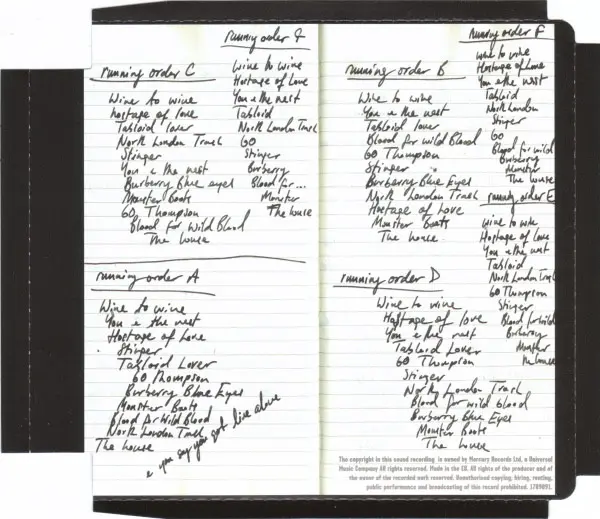 running order C
Wine to wine
hostage of love
Tabloid lover
North London Trash
Stinger
You & the nest
Burberry Blue eyes
Monster Boots
60 Thompson
Blood for Wild Blood
The louse
running order
wine to wine
Hostage of Love
You & the nest
Tabloid
North London Trash
60
Stinger
Burberry
Blood for...
Monster
The louse
running order B
Wine to wine
You & the nest
Tabloid lover
Blood for wild Blood
60 Thompson
Stinger
Burberry Blue Eyes
North London Trash
Hostage of Love
Monster Boots
The louse.
running order F
wine to wine
Hostage of Love
You & the nest
Tabloid
North London
Stinger
60
Blood for wild
Burberry
Monster
The louse
running order E
wine to wine
Hostage of Love
You & the nest
Tabloid
North London Trash
60 Thompson
Stinger
Blood for wild
Burberry
Monster
The louse
running order A
Wine to wine
You & the nest
Hostage of Love
Stinger
Tabloid Lover
60 Thompson
Burberry Blue Eyes
Monster Boots
Blood for Wild Blood
North London Trash
The louse
& you say you got live alone
running order D
Wine to wine
Hostage of love
You & the nest
Tabloid Lover
60 Thompson
Stinger
North London Trash
Blood for wild blood
Burberry Blue Eyes
Monster Boots
The louse
The copyright in this sound recording is owned by Mercury Records Ltd, a Universal
Music Company All rights reserved. Made in the EU. All rights of the producer and of
the owner of the recorded work reserved. Unauthorised copying, hiring, renting,
public performance and broadcasting of this record prohibited. 1789091.